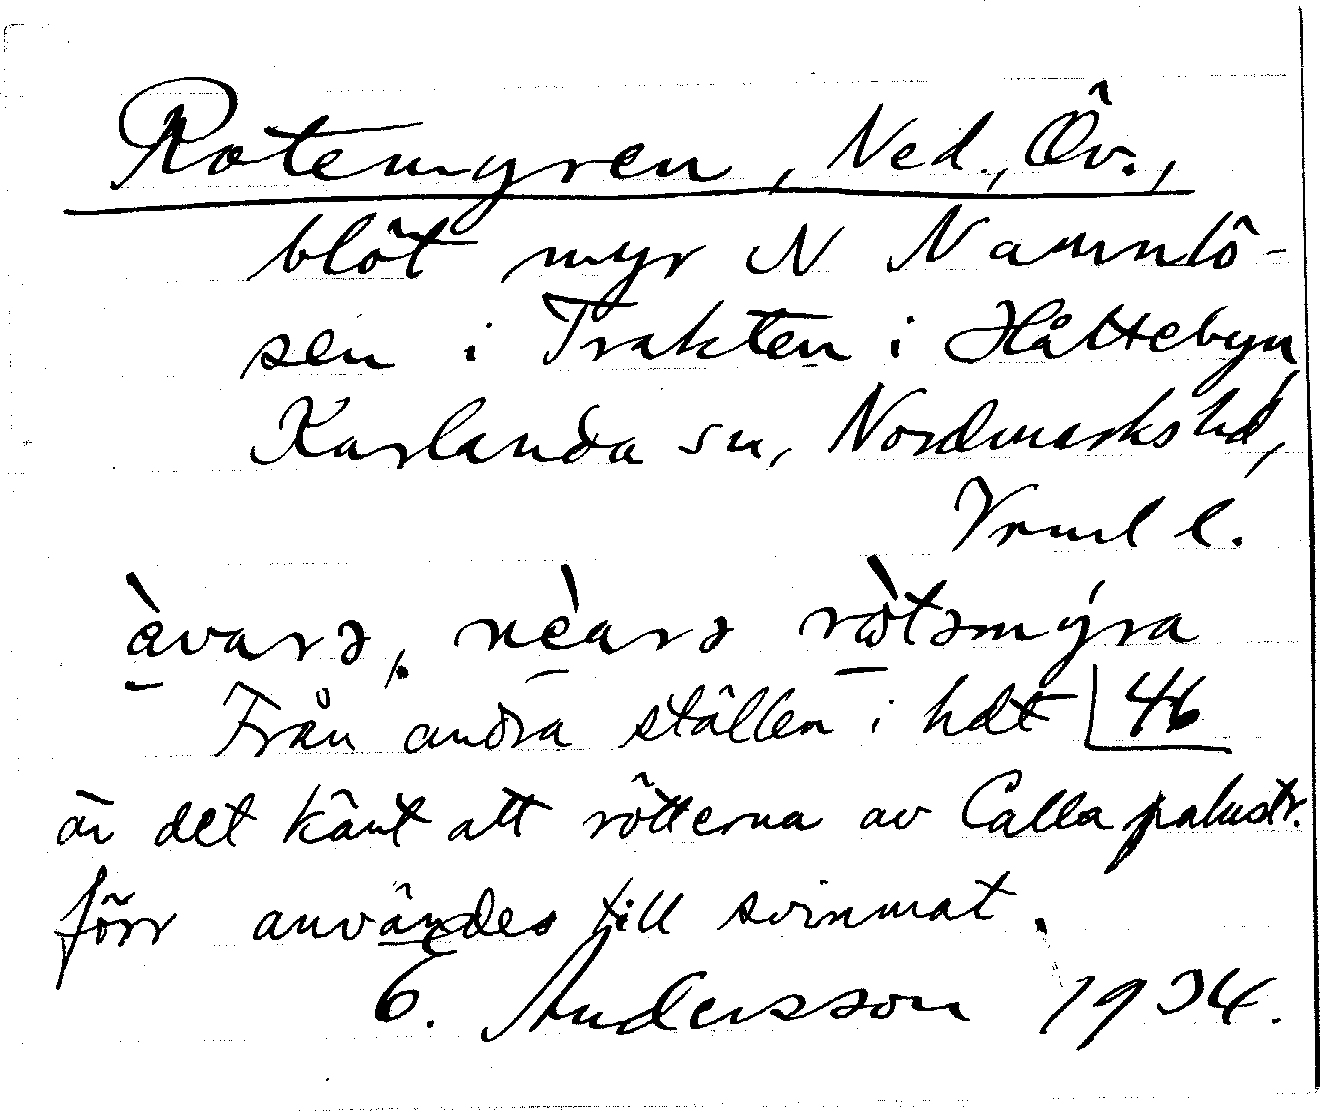 Rotemyren, Ned., Öv.,
blöt myr N Namnlö-
sen i Trakten i Håltebyn,
Karlanda sn, Nordmarks hd,
Vrml l.
èvarə, nèarə ròtəmýra
Från andra ställen i hdt 46
är det känt att rötterna av Calla palustr.
förr användes till svinmat.
E. Andersson 1934.